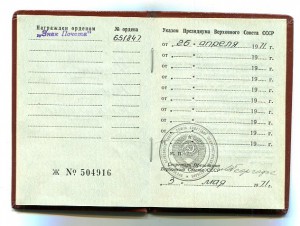 Награжден орденом
„Знак Почета"
№ ордена
651847
Ж № 504916
Указом Президиума Верховного Совета СССР
от „26" апреля 1971 г.
от „ " 19 г.
от „ " 19 г.
от „ " 19 г.
от „ " 19 г.
от „ " 19 г.
от „ " 19 г.
от „ " 19 г.
М. П.
Секретарь Президиума
Верховного Совета СССР
5 мая 71 г.